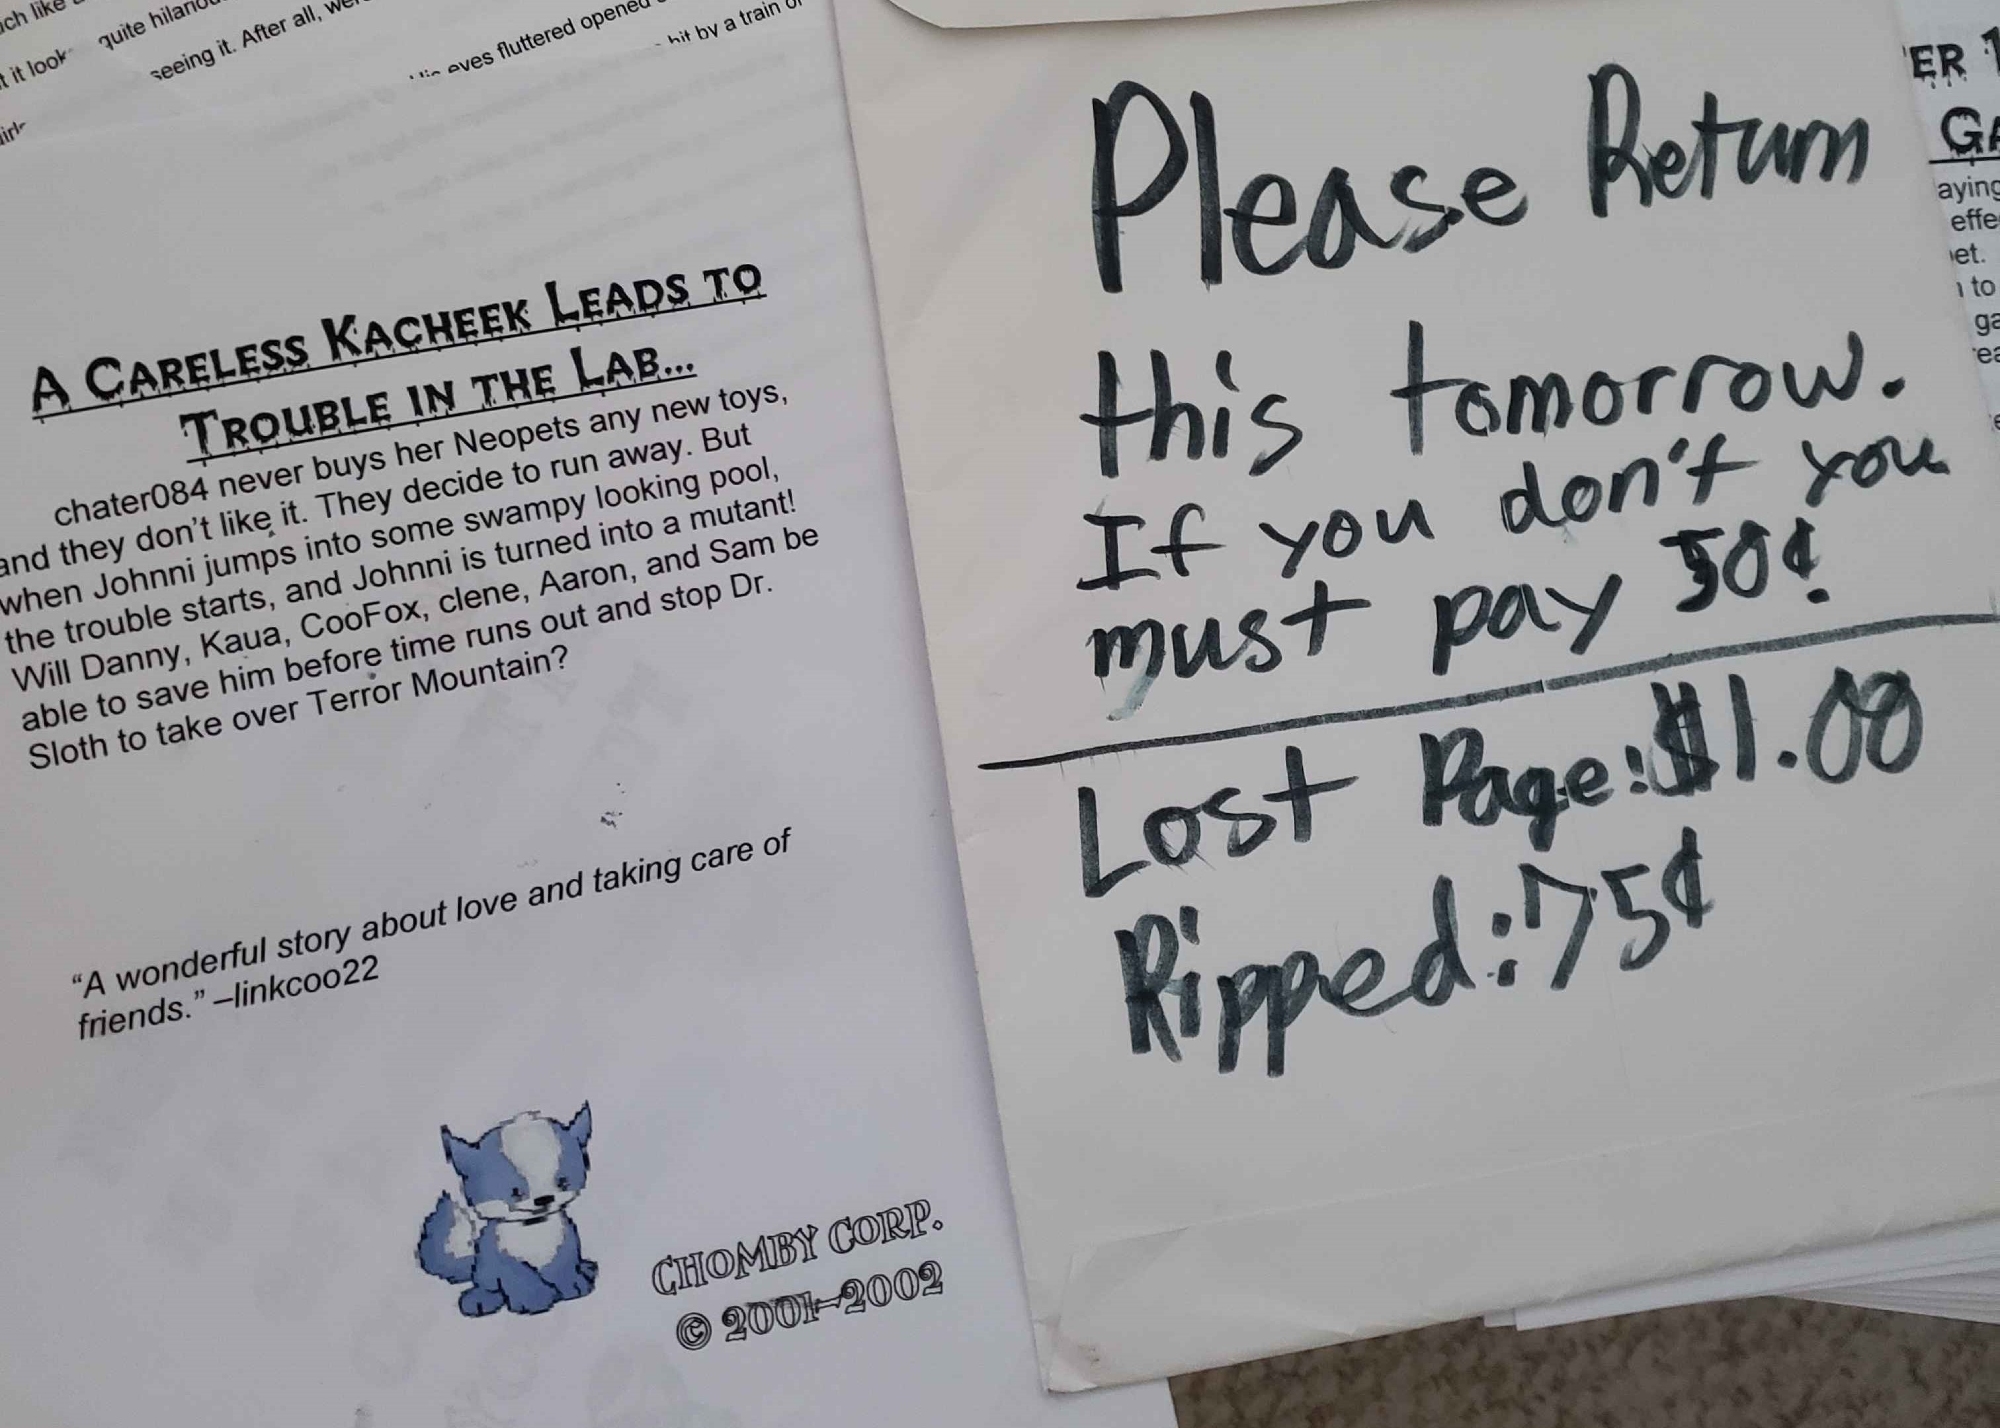 it look quite hilario
seeing it. After all,
eyes fluttered opened
hit by a train
A CARELESS KACHEEK LEADS TO
TROUBLE IN THE LAB...
chater084 never buys her Neopets any new toys,
and they don't like it. They decide to run away. But
when Johnni jumps into some swampy looking pool,
the trouble starts, and Johnni is turned into a mutant!
Will Danny, Kaua, CooFox, clene, Aaron, and Sam be
able to save him before time runs out and stop Dr.
Sloth to take over Terror Mountain?
“A wonderful story about love and taking care of
friends.” –linkcoo22
CHOMBY CORP.
© 2001–2002
Please Return
this tomorrow.
If you don't you
must pay 50¢.
Lost Page: $1.00
Ripped: 75¢
ER 1
GA
aying
effe
et.
to
ga